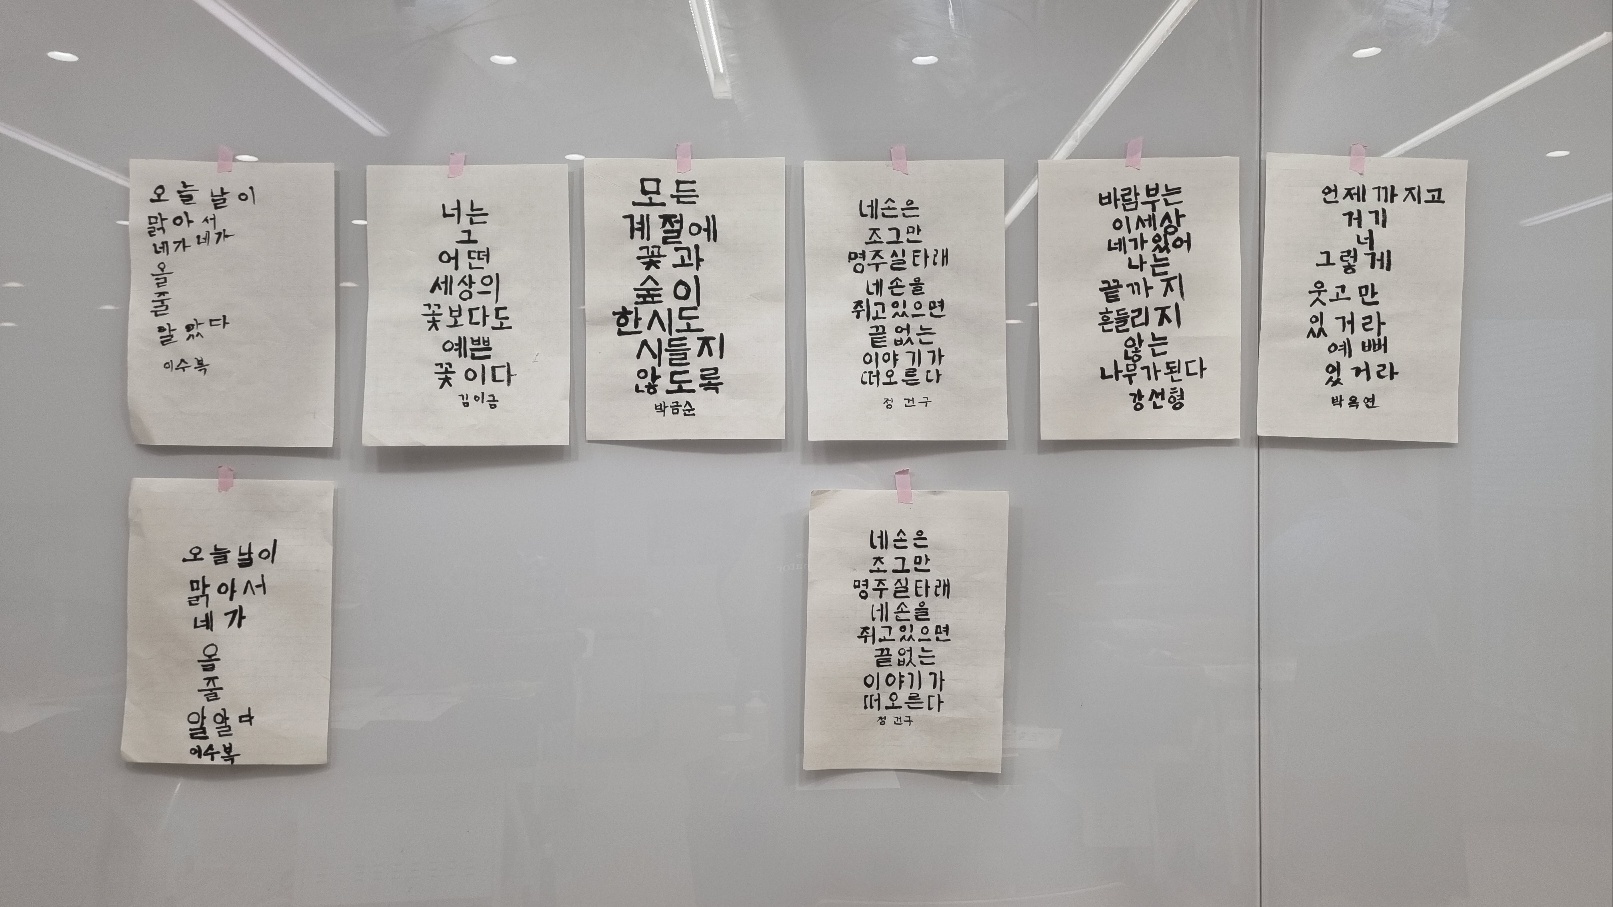 오늘 날이
맑아서
네가 네가
올
줄
알았다
이수복
너는
그
어떤
세상의
꽃보다도
예쁜
꽃이다
김이금
모든
계절에
꽃과
숲이
한시도
시들지
않도록
박금순
네손은
조그만
명주실타래
네손을
쥐고있으면
끝없는
이야기가
떠오른다
정건구
바람부는
이세상
네가있어
나는
끝까지
흔들리지
않는
나무가된다
강선형
언제까지고
거기
너
그렇게
웃고만
있거라
예뻐
있거라
박옥연
오늘날이
맑아서
네가
옴
줄
알알다
이수복
네손은
조그만
명주실타래
네손을
쥐고있으면
끝없는
이야기가
떠오른다
정건구